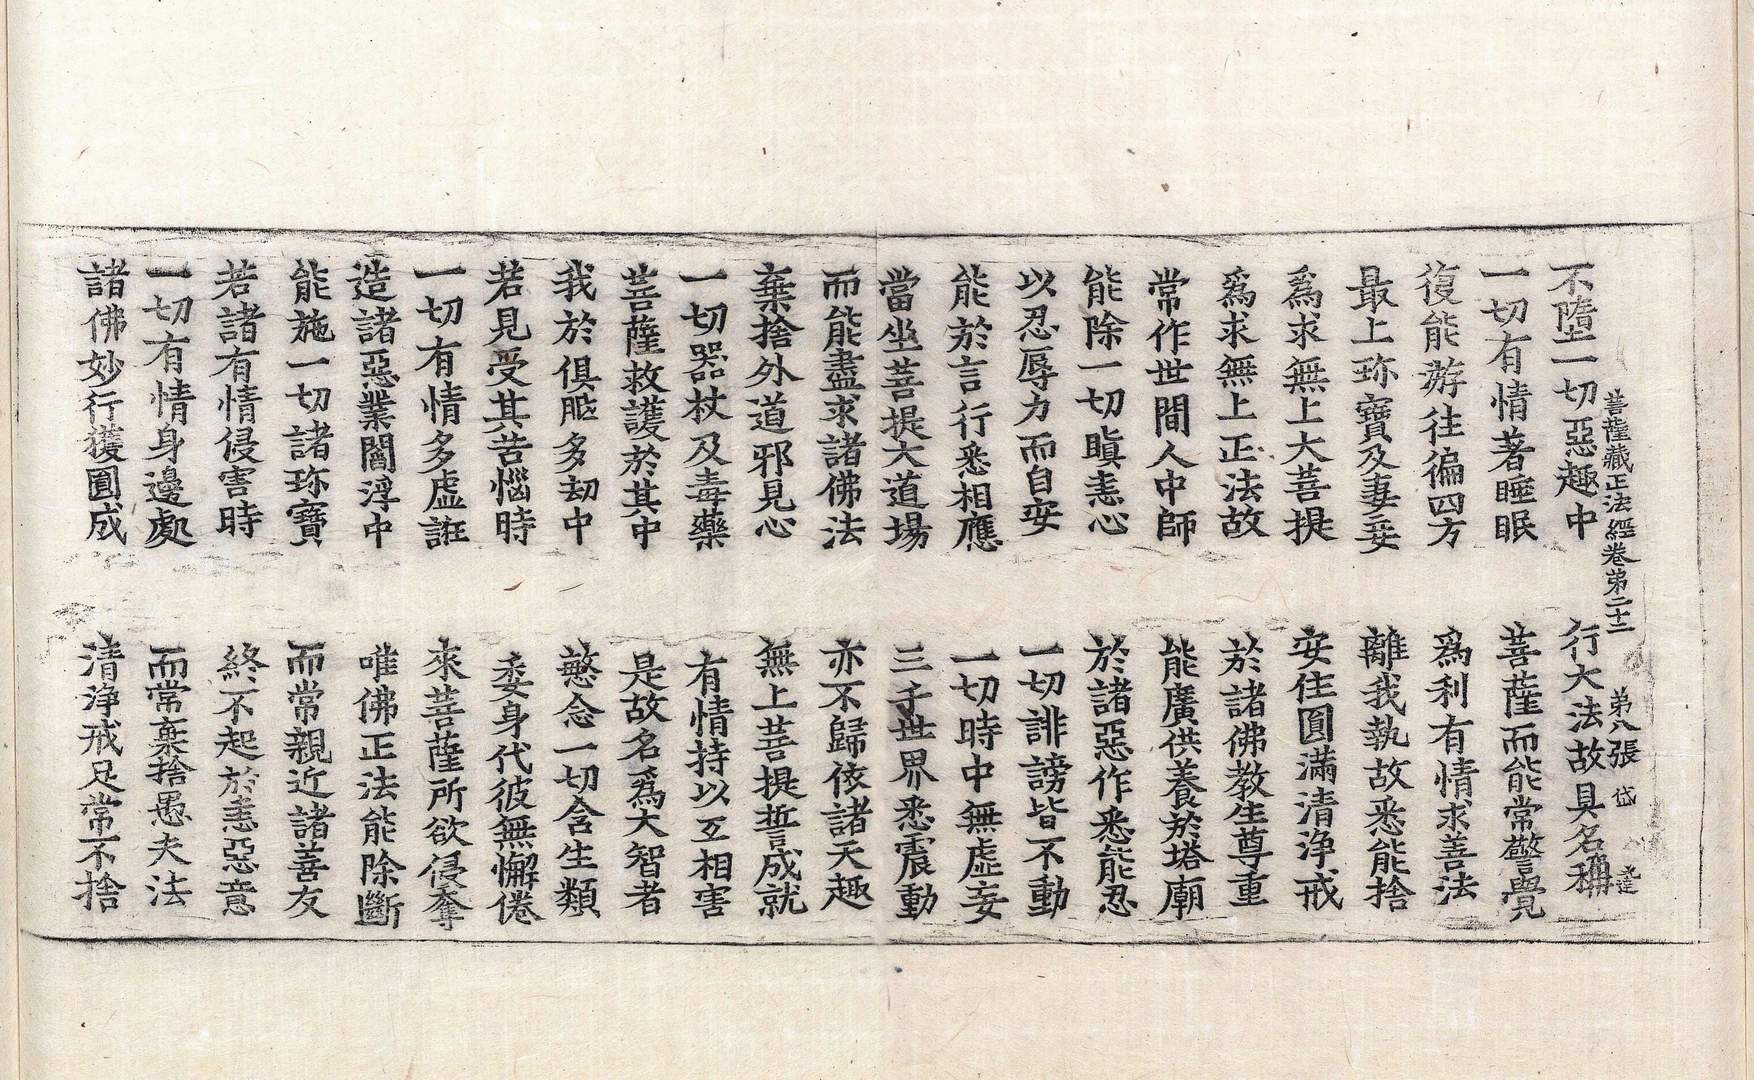 菩薩藏正法經卷第二十二　第八張　岱
不墮一切惡趣中　行大法故具名稱
一切有情著睡眠　菩薩而能常警覺
復能遊往徧四方　爲利有情求善法
最上珎寶及妻妾　離我執故悉能捨
爲求無上大菩提　安住圓滿清淨戒
爲求無上正法故　於諸佛教生尊重
常作世間人中師　能廣供養於塔廟
能除一切瞋恚心　於諸惡作悉能忍
以忍辱力而自安　一切誹謗皆不動
能於言行悉相應　一切時中無虛妄
當坐菩提大道場　三千世界悉震動
而能盡求諸佛法　亦不歸依諸天趣
棄捨外道邪見心　無上菩提誓成就
一切器杖及毒藥　有情持以互相害
菩薩救護於其中　是故名爲大智者
我於俱胝多劫中　愍念一切含生類
若見受其苦惱時　委身代彼無懈倦
一切有情多虛誑　來菩薩所欲侵奪
造諸惡業閻浮中　唯佛正法能除斷
能施一切諸珎寶　而常親近諸善友
若諸有情侵害時　終不起於恚惡意
一切有情身邊處　而常棄捨愚夫法
諸佛妙行獲圓成　清淨戒足常不捨